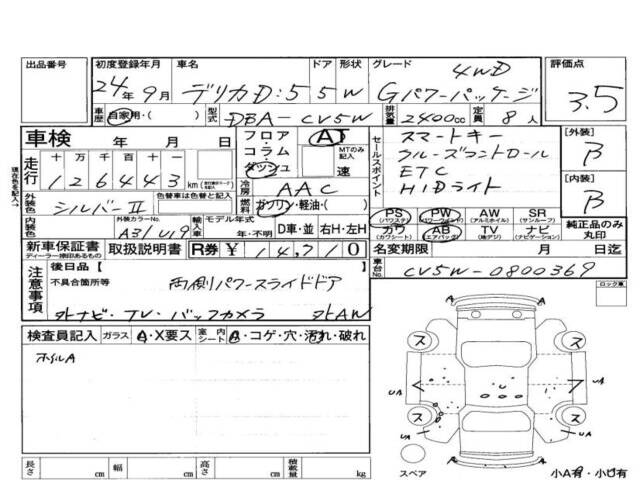 出品番号 初度登録年月 車名 ドア 形状 グレード 評価点
24年9月 デリカD:5 5 W Gパワーパッケージ 4WD 3.5
車歴 自家用・( ) 型式 DBA-CV5W 排気量 2400cc 定員 8人
車検 年 月 日
フロア コラム・ダッシュ
AT MTのみ記入 速
セールスポイント
スマートキー
クルーズコントロール
ETC
HIDライト
[外装] B
[内装] B
純正品のみ丸印
現在色を記入→
走行 十 万 千 百 十 一
126443 km
冷房 AAC
外装色 シルバーⅡ 色替車は色替前の色
燃料 ガソリン・軽油・( )
内装色 外装カラーNo. A31 U19 輸入車 モデル年式 年・不明 D車・並 右H・左H
PS (パワステ) PW (パワーウィンド) AW (アルミホイル) SR (サンルーフ)
カワ (カワシート) AB (エアバック) TV (地デジ) ナビ (ナビゲーション)
新車保証書 ディーラー捺印あるもの 取扱説明書 R券 ¥ 14,210
名変期限 月 日迄
車台No. CV5W-0800369
注意事項
後日品[ ]
不具合箇所等 両側パワースライドドア
外ナビ・TV・バックカメラ 外AW
ロック車
検査員記入 ガラス A・X要ス 室内シート B・コゲ・穴・汚れ・破れ
ホイルA
A
ス ス
UA UA
ス ス
スペア
A
小A有・小U有
長さ cm 幅 cm 高さ cm 積載量 kg